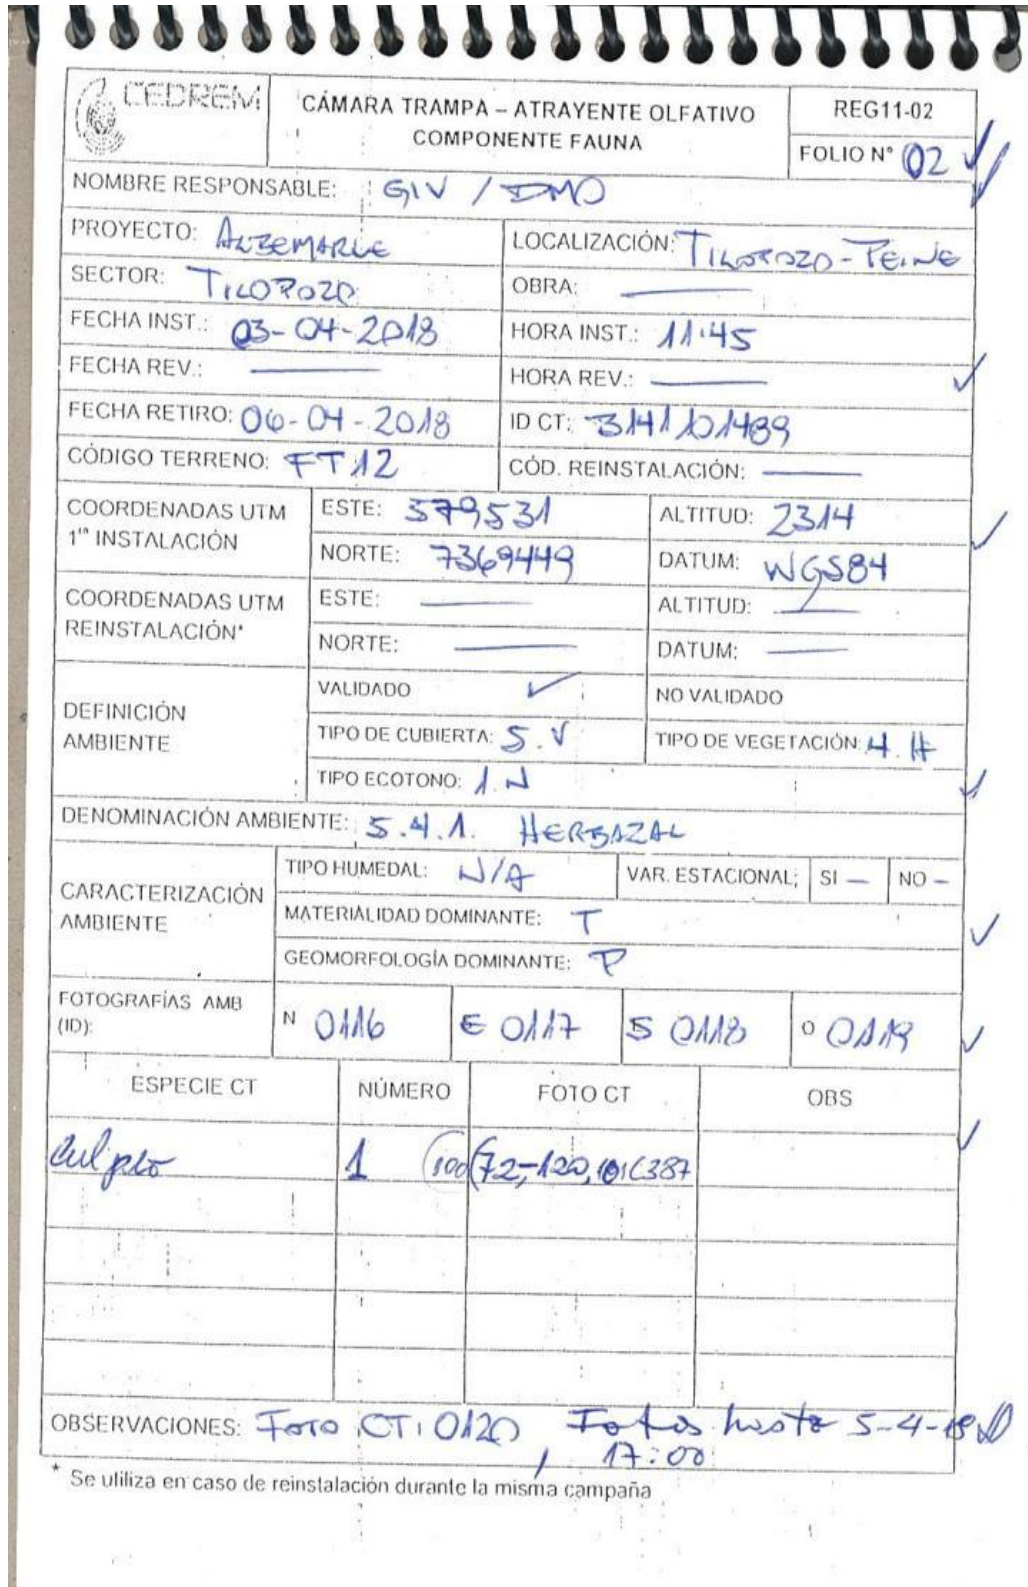 CEDREM
CÁMARA TRAMPA – ATRAYENTE OLFATIVO
COMPONENTE FAUNA
REG11-02
FOLIO N° 02
NOMBRE RESPONSABLE: GIV / DMO
PROYECTO: ALBEMARLE
LOCALIZACIÓN: TILOPOZO - PEINE
SECTOR: TILOPOZO
OBRA: —
FECHA INST.: 03-04-2018
HORA INST.: 11:45
FECHA REV.: —
HORA REV.: —
FECHA RETIRO: 06-04-2018
ID CT: 3141101489
CÓDIGO TERRENO: FT12
CÓD. REINSTALACIÓN: —
COORDENADAS UTM
1ra INSTALACIÓN
ESTE: 579531
ALTITUD: 2314
NORTE: 7369449
DATUM: WGS84
COORDENADAS UTM
REINSTALACIÓN*
ESTE: —
ALTITUD: —
NORTE: —
DATUM: —
DEFINICIÓN
AMBIENTE
VALIDADO ✓
NO VALIDADO
TIPO DE CUBIERTA: 5. V
TIPO DE VEGETACIÓN: 4. H
TIPO ECOTONO: 1. N
DENOMINACIÓN AMBIENTE: 5.4.1. HERBAZAL
CARACTERIZACIÓN
AMBIENTE
TIPO HUMEDAL: N/A
VAR. ESTACIONAL; SI — NO –
MATERIALIDAD DOMINANTE: T
GEOMORFOLOGÍA DOMINANTE: P
FOTOGRAFÍAS AMB
(ID):
N 0116
E 0117
S 0118
O 0119
ESPECIE CT
NÚMERO
FOTO CT
OBS
Culpeo
1
(100) (72,-120,
387
OBSERVACIONES: FOTO CT: 0120, Fotos hasta 5-4-18
17:00
* Se utiliza en caso de reinstalación durante la misma campaña